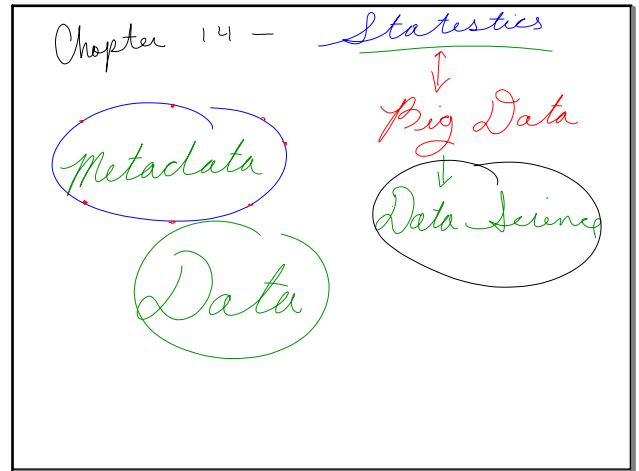 Chapter 14 - Statestics
Big Data
Metadata
Data Science
Data